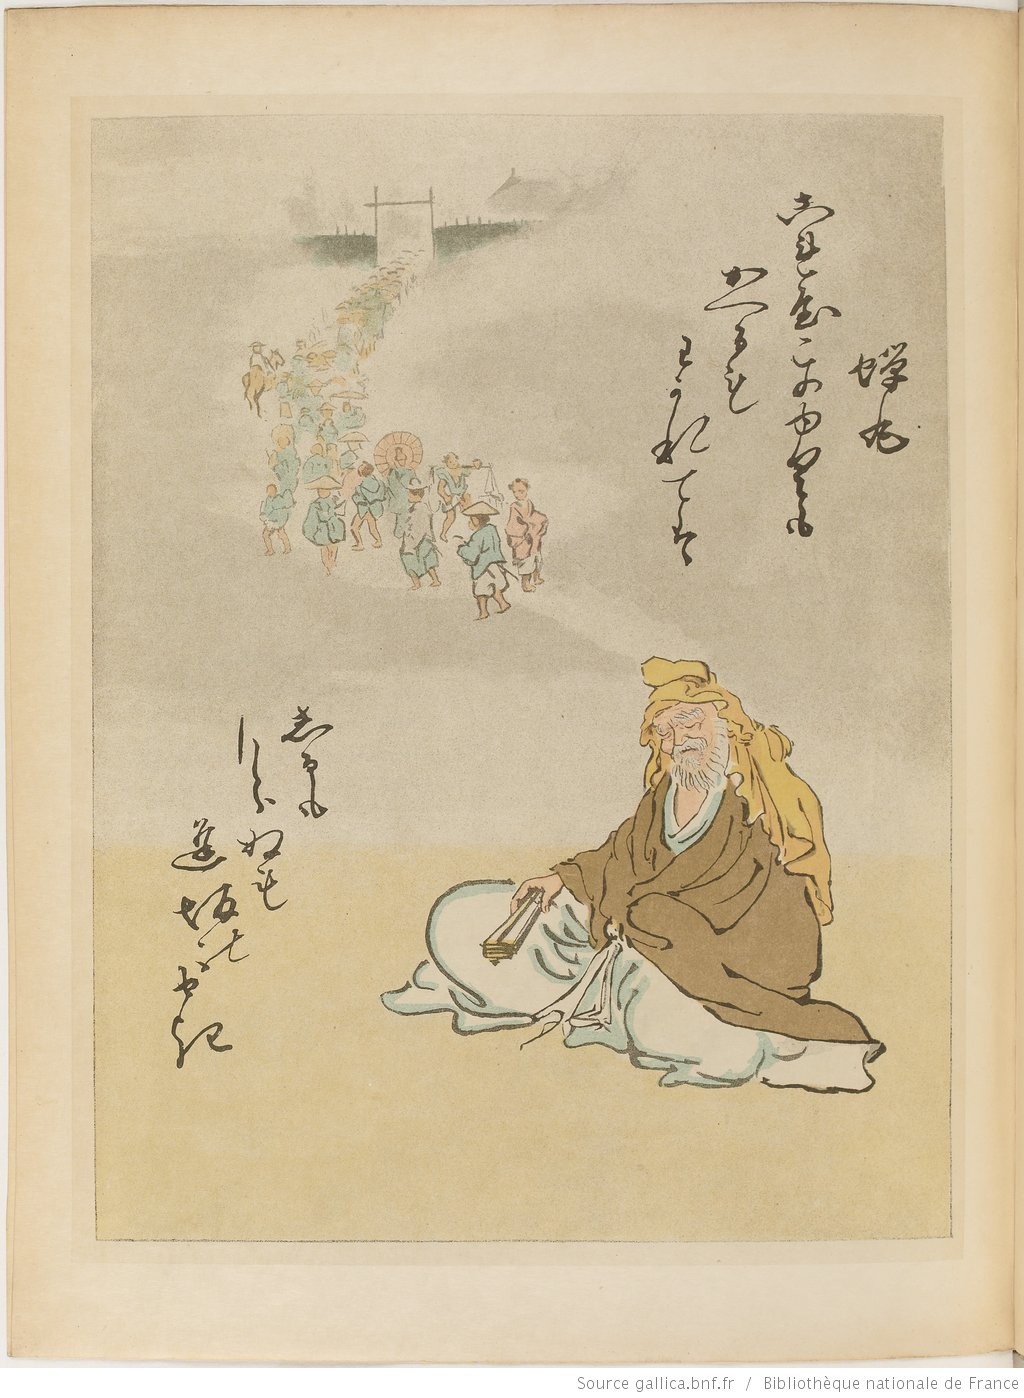 蝉丸
これやこのゆくも
かへるも
わかれては
しるも
しらぬも
逢坂のせき
Source gallica.bnf.fr / Bibliothèque nationale de France